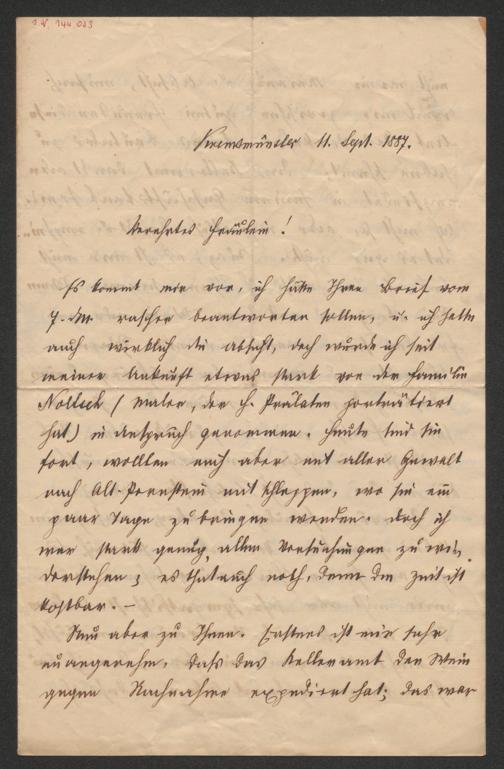 I.N. 144.023
Kremsmünster 11. Sept. 1887.
Verehrtes Fräulein!
Es kommt mir vor, ich hätte Ihren Brief vom
7. d. M. rascher beantworten sollen, u. ich hatte
auch wirklich die Absicht, doch wurde ich seit
meiner Ankunft etwas stark von der Familie
Noltsch (Maler, der H. Prälaten porträtiert
hat) in Anspruch genommen. Heute sind sie
fort, wollten mich aber mit aller Gewalt
nach Alt-Pernstein mitschleppen, wo sie ein
paar Tage zubringen werden. Doch ich
war stark genug, allen Versuchungen zu wi-
derstehen; es that auch noth, denn die Zeit ist
kostbar. –
Nun aber zu Ihnen. Erstens ist mir sehr
unangenehm, daß das Kelleramt den Wein
gegen Nachnahme expediert hat; das war